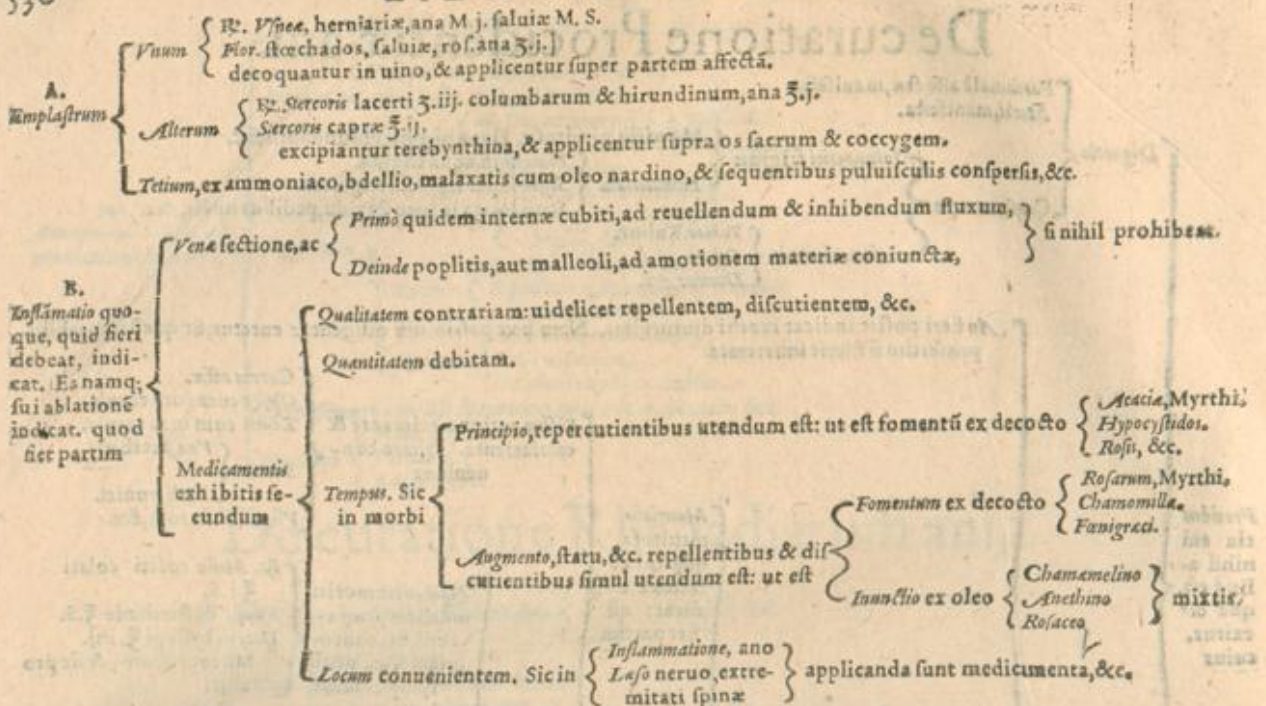 A.
Emplastrum
Vnum
℞. Vsneæ, herniariæ, ana M j. saluiæ M. S.
Flor. stœchados, saluiæ, ros. ana ʒ.j.
decoquantur in uino, & applicentur super partem affectã.
Alterum
℞. Stercoris lacerti ʒ.iij. columbarum & hirundinum, ana ℥.j.
Stercoris capræ ℥.ij.
excipiantur terebynthina, & applicentur supra os sacrum & coccygem.
Tetium, ex ammoniaco, bdellio, malaxatis cum oleo nardino, & sequentibus puluisculis conspersis, &c.
B.
Inflãmatio quo-
que, quid fieri
debeat, indi-
cat. Ea namq;
sui ablationē
indicat. quod
fiet partim
Venæ sectione, ac
Primò quidem internæ cubiti, ad reuellendum & inhibendum fluxum,
Deinde poplitis, aut malleoli, ad amotionem materiæ coniunctæ,
si nihil prohibeat.
Medicamentis
exhibitis se-
cundum
Qualitatem contrariam: uidelicet repellentem, discutientem, &c.
Quantitatem debitam.
Tempus. Sic
in morbi
Principio, repercutientibus utendum est: ut est fomentũ ex decocto
Acaciæ, Myrthi,
Hypocystidos.
Rosis, &c.
Augmento, statu, &c. repellentibus & dis-
cutientibus simul utendum est: ut est
Fomentum ex decocto
Rosarum, Myrthi,
Chamomillæ.
Fœnigræci.
Inunctio ex oleo
Chamæmelino
Anethino
Rosaceo
mixtis.
Locum conuenientem. Sic in
Inflammatione, ano
Læso neruo, extre-
mitati spinæ
applicanda sunt medicamenta, &c.